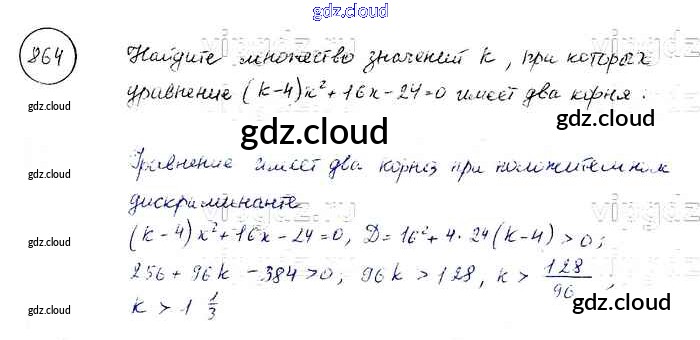 gdz.cloud
864
Найдите множество значений k, при которых
уравнение (k-4)x²+16x-24=0 имеет два корня.
gdz.cloud
gdz.cloud
gdz.cloud
Уравнение имеет два корня при положительном
gdz.cloud
дискриминанте
vipgdz
(k-4)x²+16x-24=0, D=16²+4·24(k-4)>0;
gdz.cloud
256+96k-384>0, 96k>128, k>128/96,
k>1 1/3
gdz.cloud
gdz.cloud